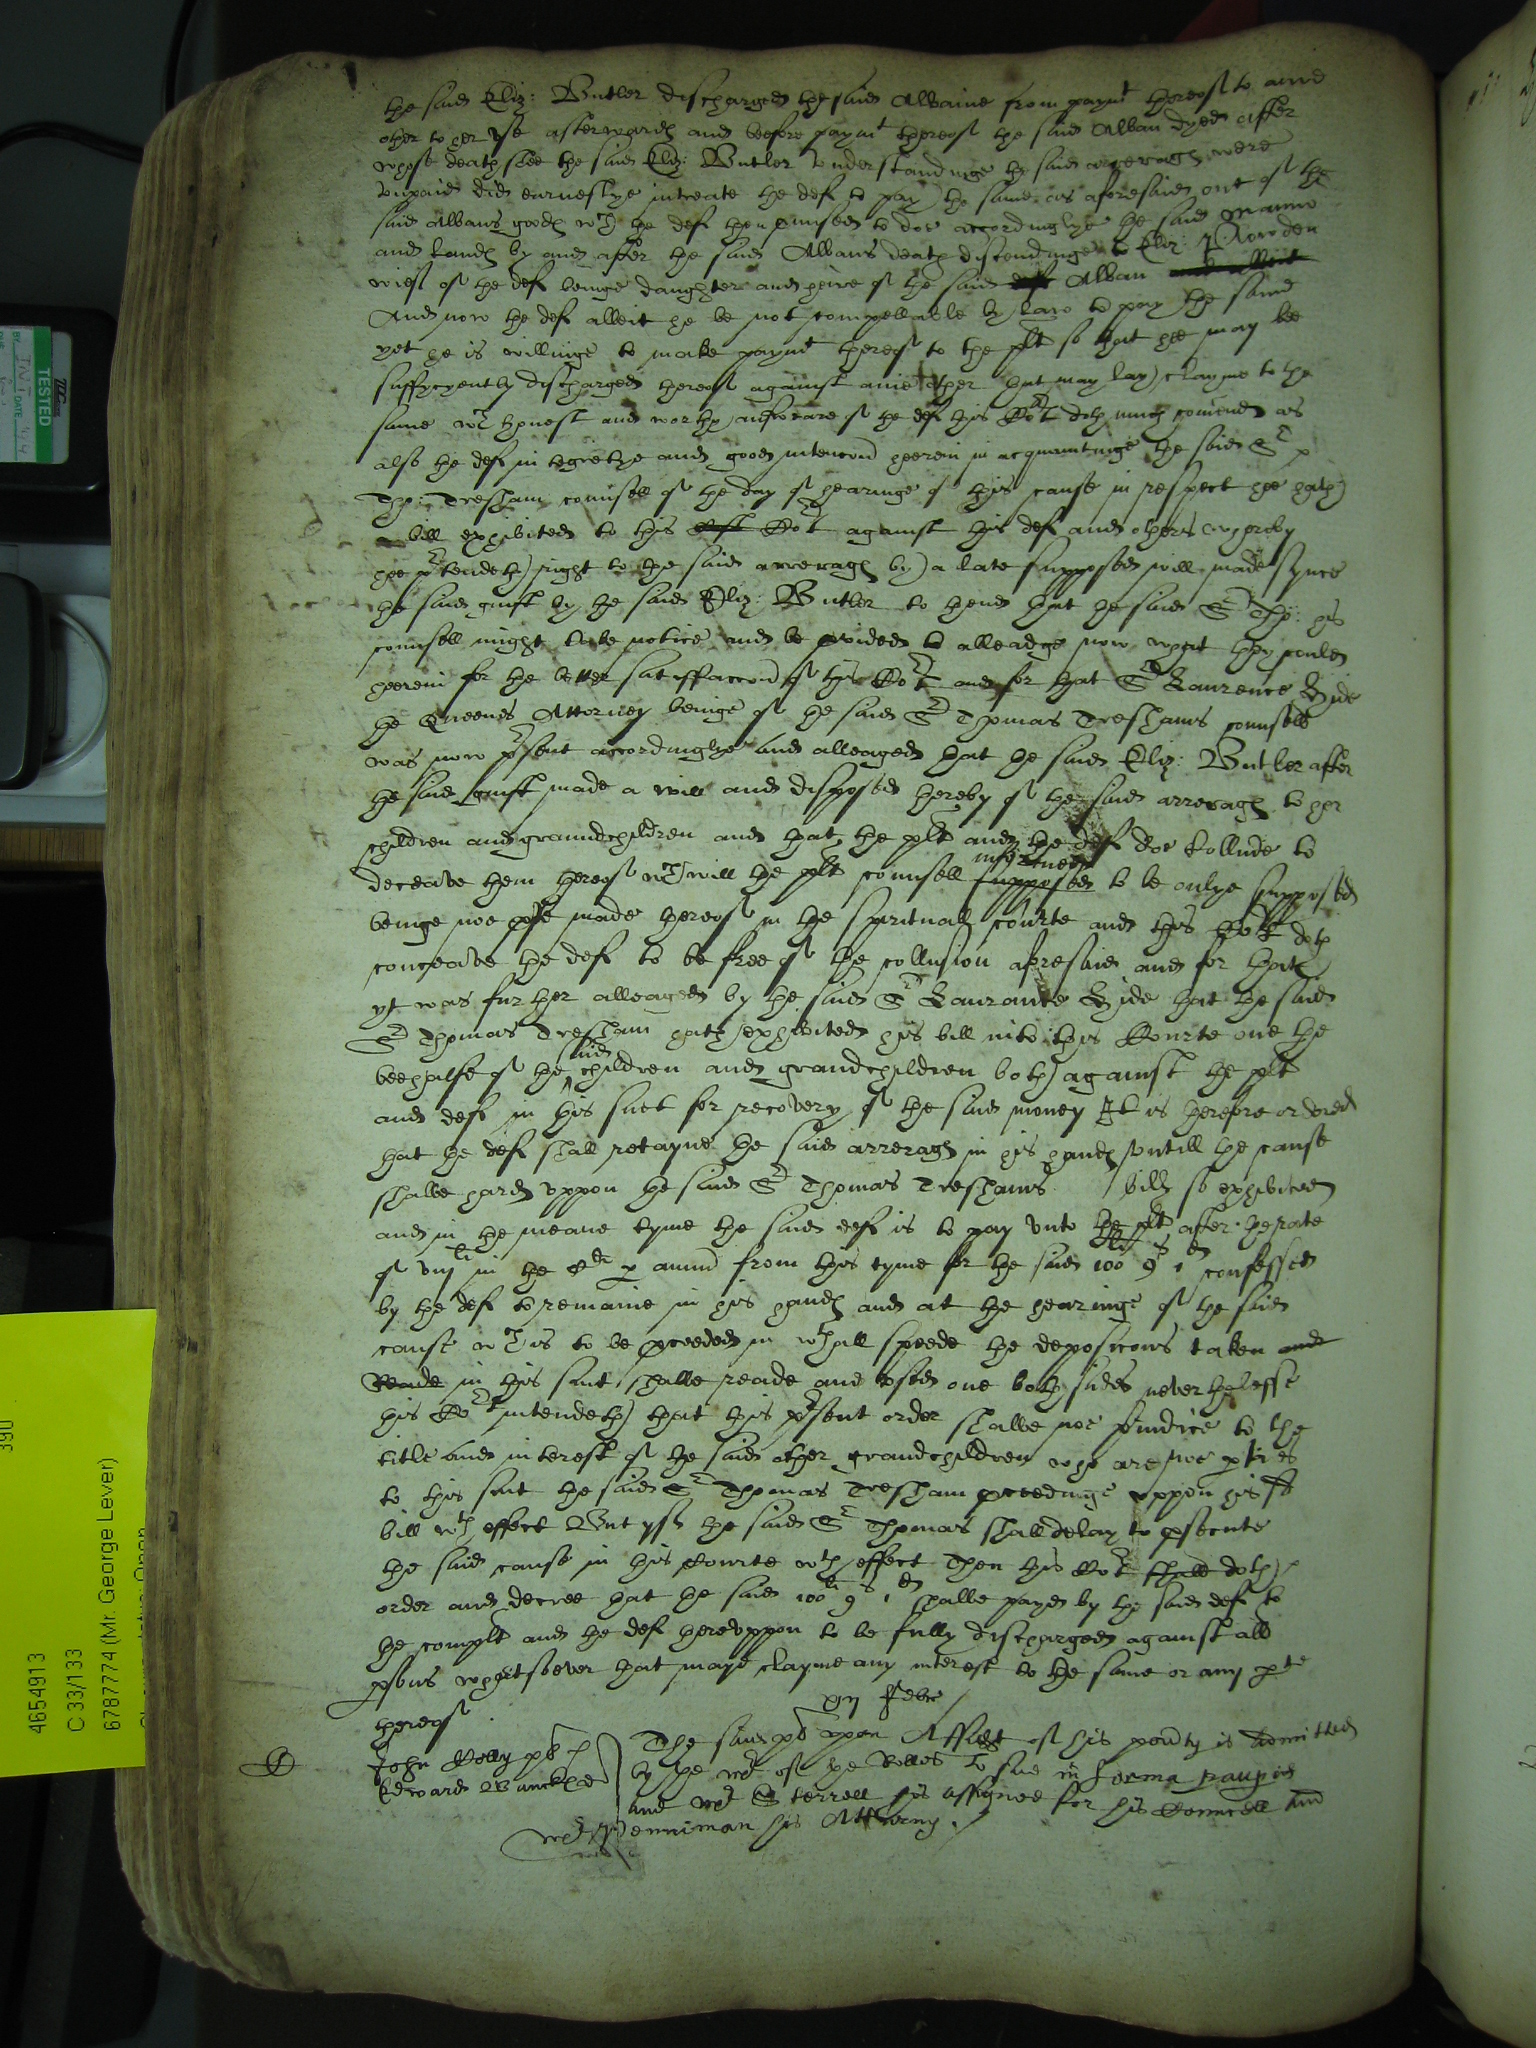 the said Eliz: Butler discharged the said Albaine from paymt thereof to anie
other to her use afterward and beefore paymt thereof the said Alban dyed after
whose death shee the said Eliz: Butler understandinge the said arreragꝭ were
unpaid did earnestlye intreate the def to pay the same as aforesaid out of the
said Albans goodꝭ wch the def then pmised to doe accordinglye the said Mannor
and Landꝭ by and after the said Albans death discendinge to Eliz:
wief of the def beinge daughter and heire of the said def Alban and albeit
And now the def albeit he be not compellable by law to pay the same
yet he is willinge to make paymt thereof to the plt so that hee may be
suffycyently discharged thereof against anie other that may lay clayme to the
same wch honest and worthy of the def this Cort doth much comend as
also the def in and good intencon herein in acquaintinge the said Sr
Tho: Tresham counsell of the day of hearinge of this cause in respect hee hath
a bill exhibited to this Cort against this def and others whereby
hee prtendeth right to the said arreragꝭ by a late supposed will made synce
the said guift by the said Eliz: Butler to thend that the said Sr Tho: his
counsell might take notice and be pvided to alleadge now what they could
heerein for the better satisffaccon of this Cort and for that Sr Laurence Hide
the Queenes Attorney beinge of the said Sr Thomas Treshams counsell
was now prsent accordinglye and alleaged that the said Eliz: Butler after
the said guift made a will and disposed thereby of the said arreragꝭ to her
children and graundchildren and that the plt and the def doe Collude to
deceave them thereof wch will the plt counsell supposed informed to be onlye supposed
beinge noe pfe made thereof in the spirituall courte and this Cort doth
conceave the def to be free of the collusion aforesaid and for that
yt was further alleaged by the said Sr Laurance Hide that the said
Sr Thomas Tresham hath exhibited his bill into this Courte one the
beehalfe of the said children and grandchildren both against the plt
and deft in this suit for recovery of the said money It is therefore ordered
that the def shall retayne the said arreragꝭ in his handꝭ untill the cause
shalbe hard uppon the said Sr Thomas Treshams bill so exhibited
and in the meane tyme the said def is to pay unto the plt after the rate
of viijli in the Cth p annu from this tyme for the said 100li 9s 1d confessed
by the def to remaine in his handꝭ and at the hearinge of the said
cause wch is to be pceeded in wth all speede the deposicons taken and
Reade in this suit shalbe reade and used one both sides neverthelesse
this Cort intendeth that this prsent order shalbe noe priudice to the
title and interest of the said other grandchildren who are noe pties
to this suit the said Sr Thomas Tresham pceedinge uppon his
bill wth effect But yf the said Sr Thomas shall delay to psecute
the said cause in this Courte wth effect Then this Cort shall doth
order and decree that the said 100li 9s 1d shalbe payed by the said def to
the complt and the def thereuppon to be fully discharged against all
psons whatsoever that maye clayme any interest to the same or any pte
thereof
Febr
John Kelly plt
Edward def
The said plt uppon Affidt of his povty is Admitted
by the mr of the Rolles to sue in forma paupis
and mr Terrell is assigned for his Councell and
mr Penniman his Attorny.
TESTED
DATE
390
4654913
C 33/133
6787774 (Mr. George Lever)